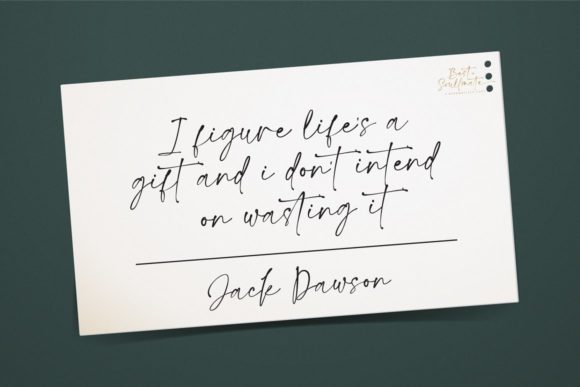 Best
Soullmate
I figure life's a
gift and i don't intend
on wasting it
Jack Dawson